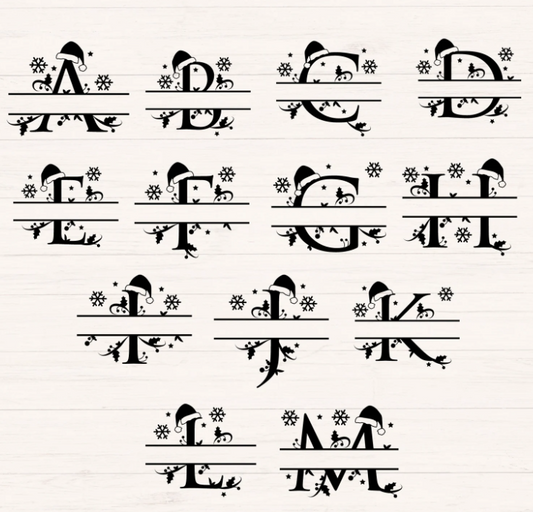 A B C D
E F G H
I J K
L M